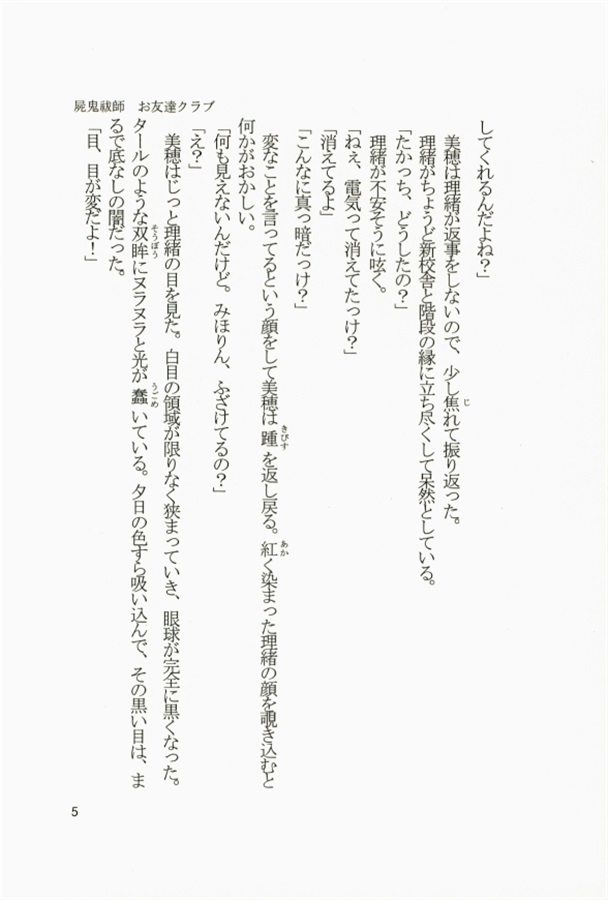 屍鬼祓師　お友達クラブ
してくれるんだよね？」
　美穂は理緒が返事をしないので、少し焦れて振り返った。
　理緒がちょうど新校舎と階段の縁に立ち尽くして呆然としている。
「たかっち、どうしたの？」
　理緒が不安そうに呟く。
「ねぇ、電気って消えてたっけ？」
「消えてるよ」
「こんなに真っ暗だっけ？」
　変なことを言ってるという顔をして美穂は踵を返し戻る。紅く染まった理緒の顔を覗き込むと
何かがおかしい。
「何も見えないんだけど。みほりん、ふざけてるの？」
「え？」
　美穂はじっと理緒の目を見た。白目の領域が限りなく狭まっていき、眼球が完全に黒くなった。
タールのような双眸にヌラヌラと光が蠢いている。夕日の色すら吸い込んで、その黒い目は、ま
るで底なしの闇だった。
「目、目が変だよ！」
5